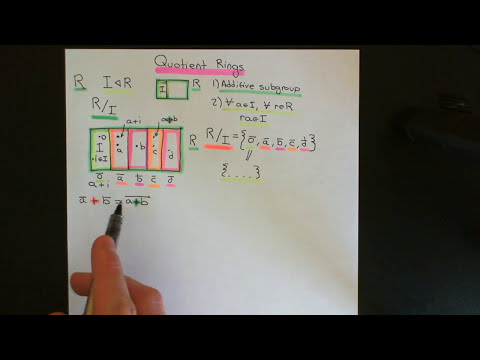 Quotient Rings
R I ◁ R I R 1) Additive subgroup
R/I 2) ∀ a∈I, ∀ r∈R
ra∈I
a+i
R/I = {0̅, a̅, b̅, c̅, d̅}
·0 I ·i∈I ·a ·b ·c ·d R
=
0̅ a̅ b̅ c̅ d̅ {....}
a+i
a̅ + b̅ = a+b